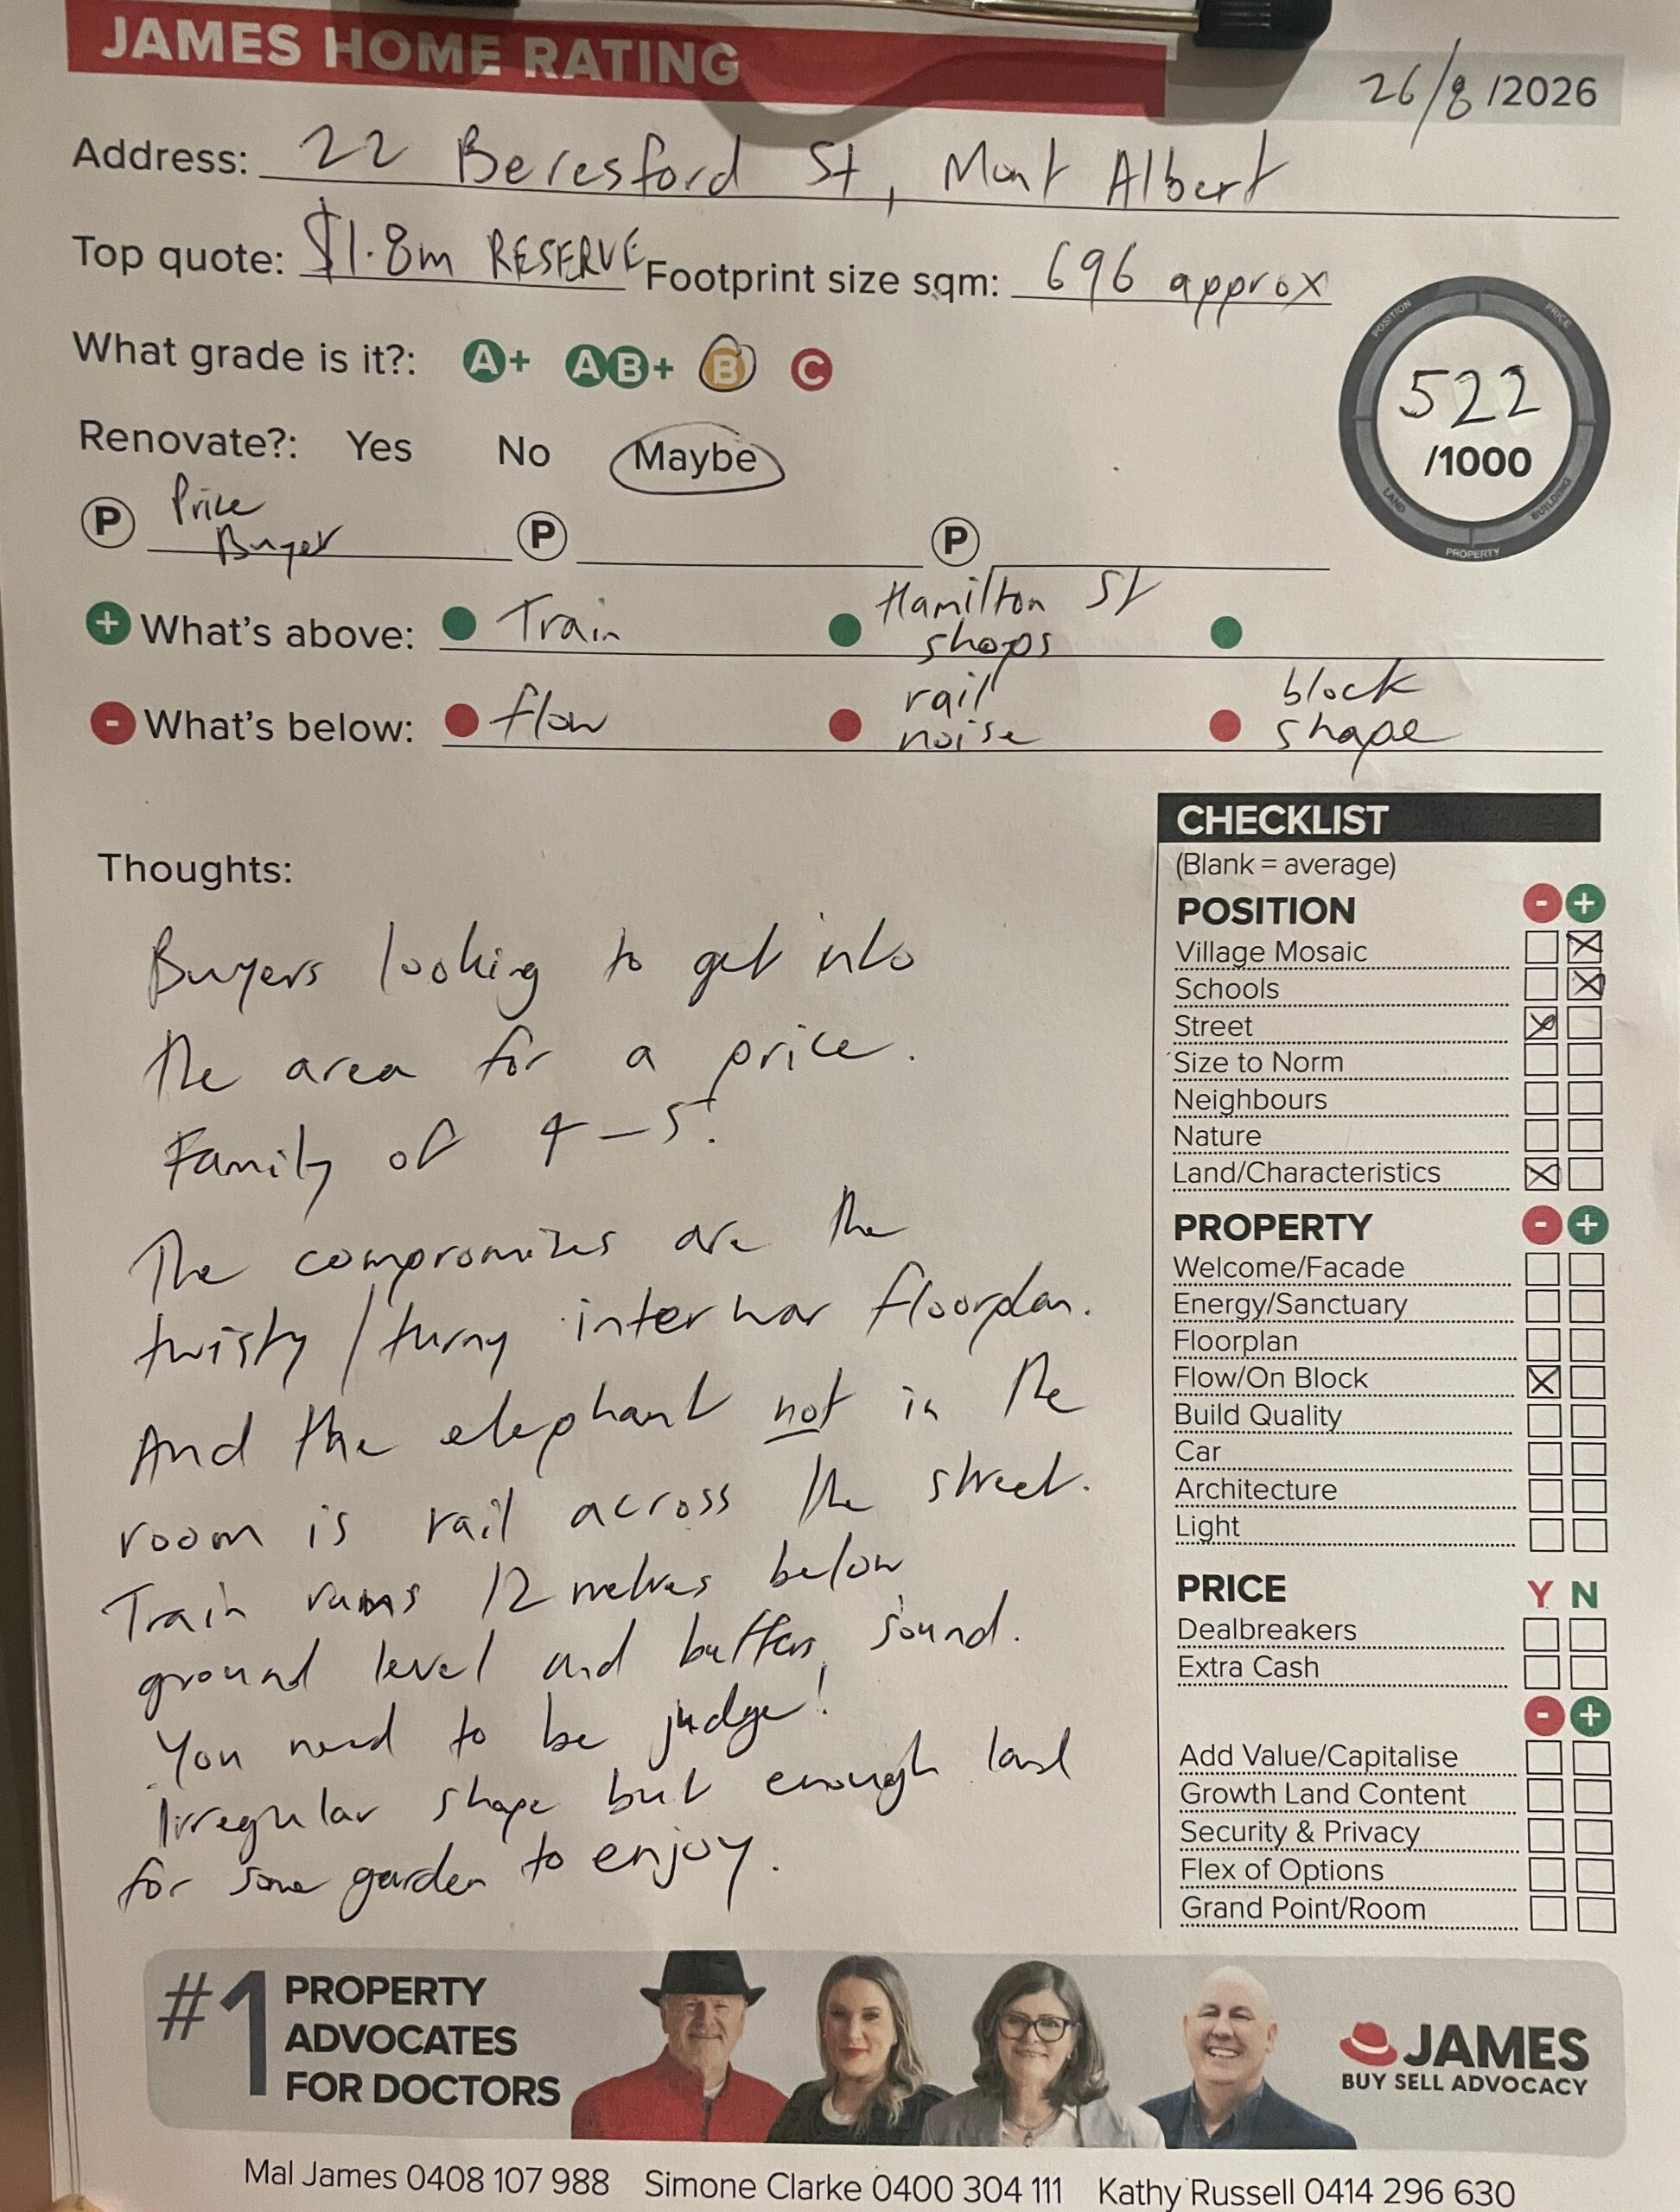 JAMES HOME RATING
26/8/2026
Address: 22 Beresford St, Mont Albert
Top quote: $1.8m RESERVE Footprint size sqm: 696 approx
What grade is it?: A+ AB+ B C
POSITION PRICE BUILDING PROPERTY LAND
522
/1000
Renovate?: Yes No Maybe
P Price Buyer P P
+ What's above: Train Hamilton St shops
- What's below: flow rail noise block shape
Thoughts:
Buyers looking to get into
the area for a price.
Family of 4-5?
The compromises are the
twisty/turny interwar floorplan.
And the elephant not in the
room is rail across the street.
Train runs 12 metres below
ground level and buffers sound.
You need to be judge!
Irregular shape but enough land
for some garden to enjoy.
CHECKLIST
(Blank = average)
POSITION - +
Village Mosaic
Schools
Street
Size to Norm
Neighbours
Nature
Land/Characteristics
PROPERTY - +
Welcome/Facade
Energy/Sanctuary
Floorplan
Flow/On Block
Build Quality
Car
Architecture
Light
PRICE Y N
Dealbreakers
Extra Cash
- +
Add Value/Capitalise
Growth Land Content
Security & Privacy
Flex of Options
Grand Point/Room
#1 PROPERTY
ADVOCATES
FOR DOCTORS
JAMES
BUY SELL ADVOCACY
Mal James 0408 107 988 Simone Clarke 0400 304 111 Kathy Russell 0414 296 630